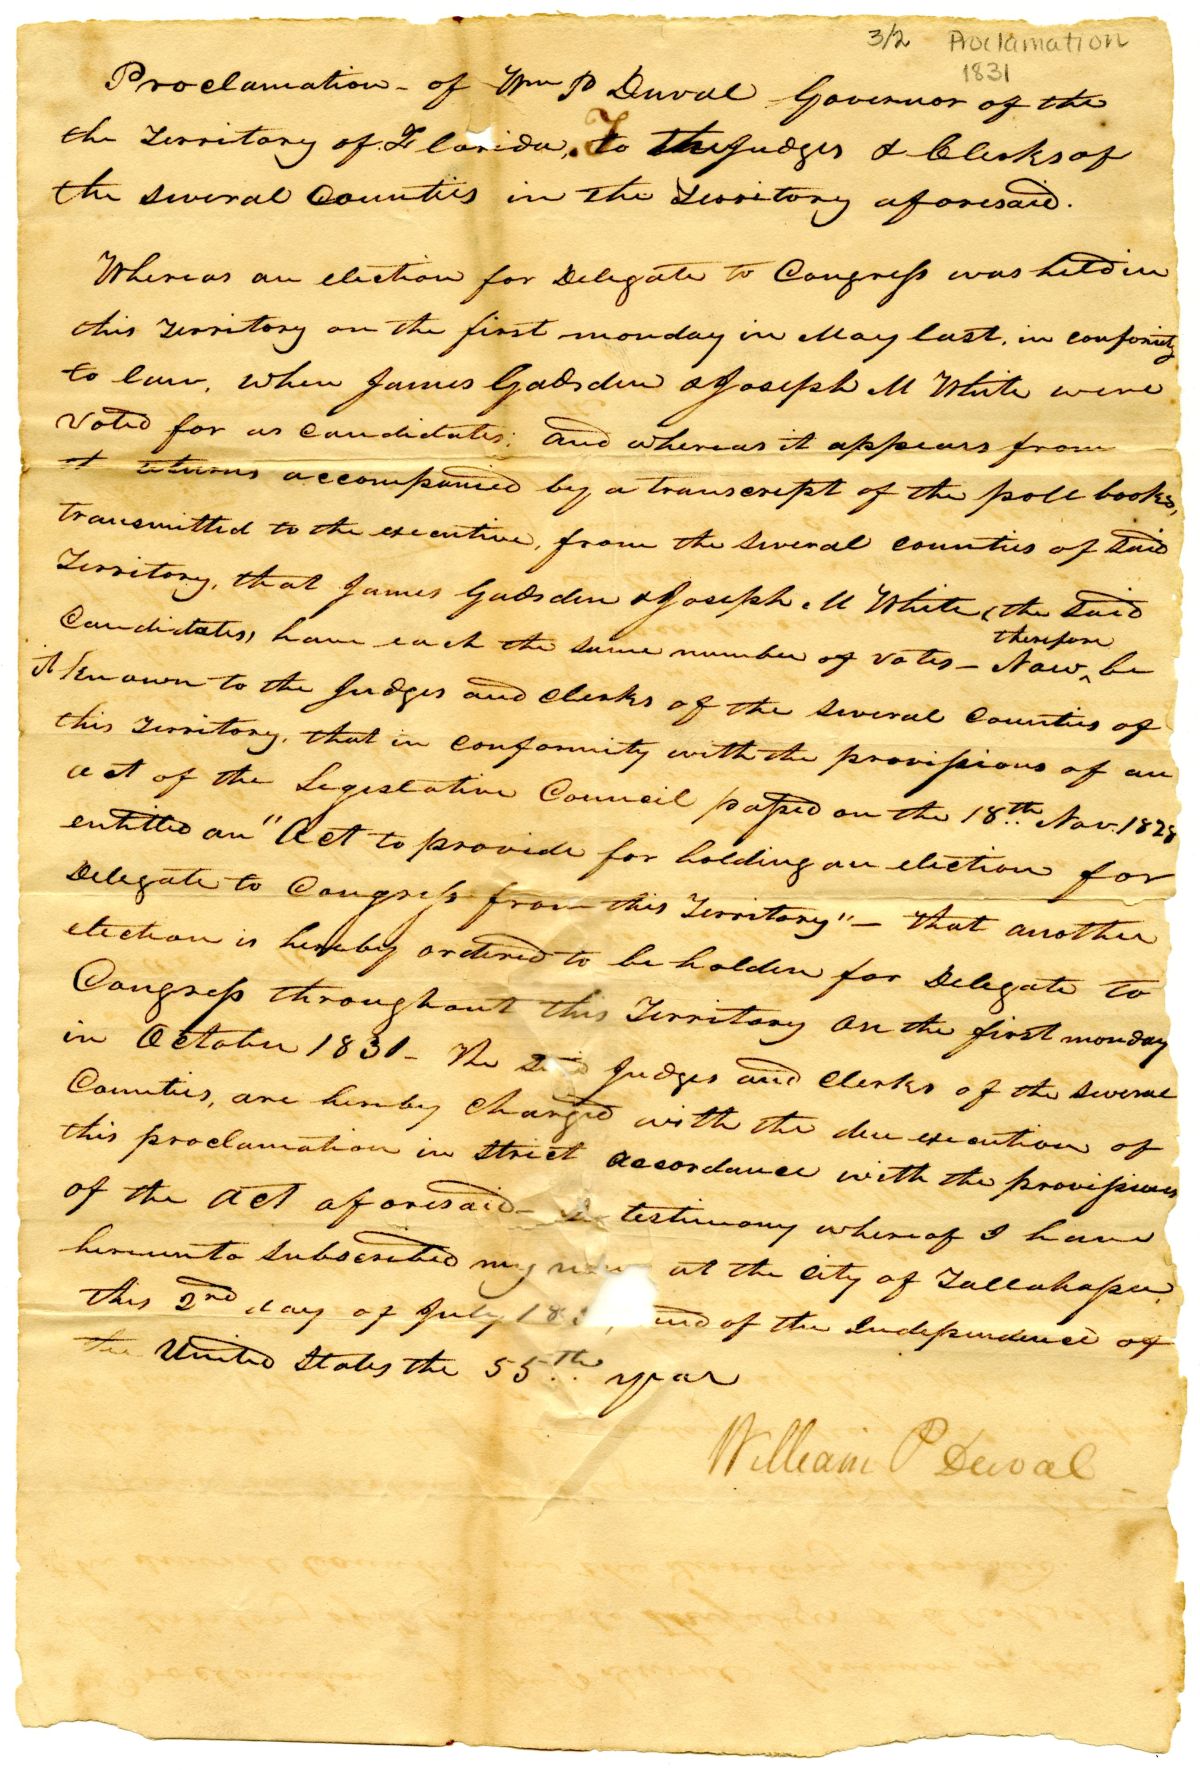 3/2 Proclamation
1831
Proclamation - of Wm P Duval Governor of the
the Territory of Florida, To the Judges & Clerks of
the several Counties in the Territory aforesaid.
Whereas an election for Delegate to Congress was held in
this Territory on the first monday in May last, in conformity
to law, when James Gadsden & Joseph M White were
voted for as candidates; and whereas it appears from
returns accompanied by a transcript of the poll books,
transmitted to the executive, from the several counties of said
Territory, that James Gadsden & Joseph M White, (the said
Candidates, have each the same number of votes - Now therefore be
it known to the Judges and Clerks of the several Counties of
this Territory, that in conformity with the provisions of an
act of the Legislative Council passed on the 18th Nov. 1828
entitled an "Act to provide for holding an election for
Delegate to Congress from this Territory" - that another
election is hereby ordered to be holden for Delegate to
Congress throughout this Territory on the first monday
in October 1831 - The said Judges and Clerks of the several
Counties, are hereby charged with the due execution of
this proclamation in strict accordance with the provisions
of the Act aforesaid - In testimony whereof I have
hereunto subscribed my at the City of Tallahassee,
this 2nd day of July 183 and of the Independence of
the United States the 55th year
William P Duval